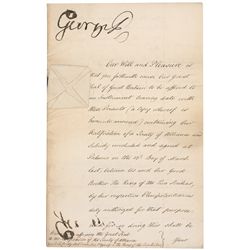 George R
Our Will and Pleasure is
that you forthwith cause Our Great
Seal of Great Britain to be affixed to
an Instrument bearing date with
these Presents (a Copy whereof is
hereunto annexed) containing Our
Ratification of a Treaty of Alliance and
Subsidy concluded and signed at
Palermo on the 13th Day of March
last, between Us and Our Good
Brother The King of the Two Sicilies,
by Our respective Plenipotentiaries
duly authorized for that purpose.
And for so doing this shall be
Your